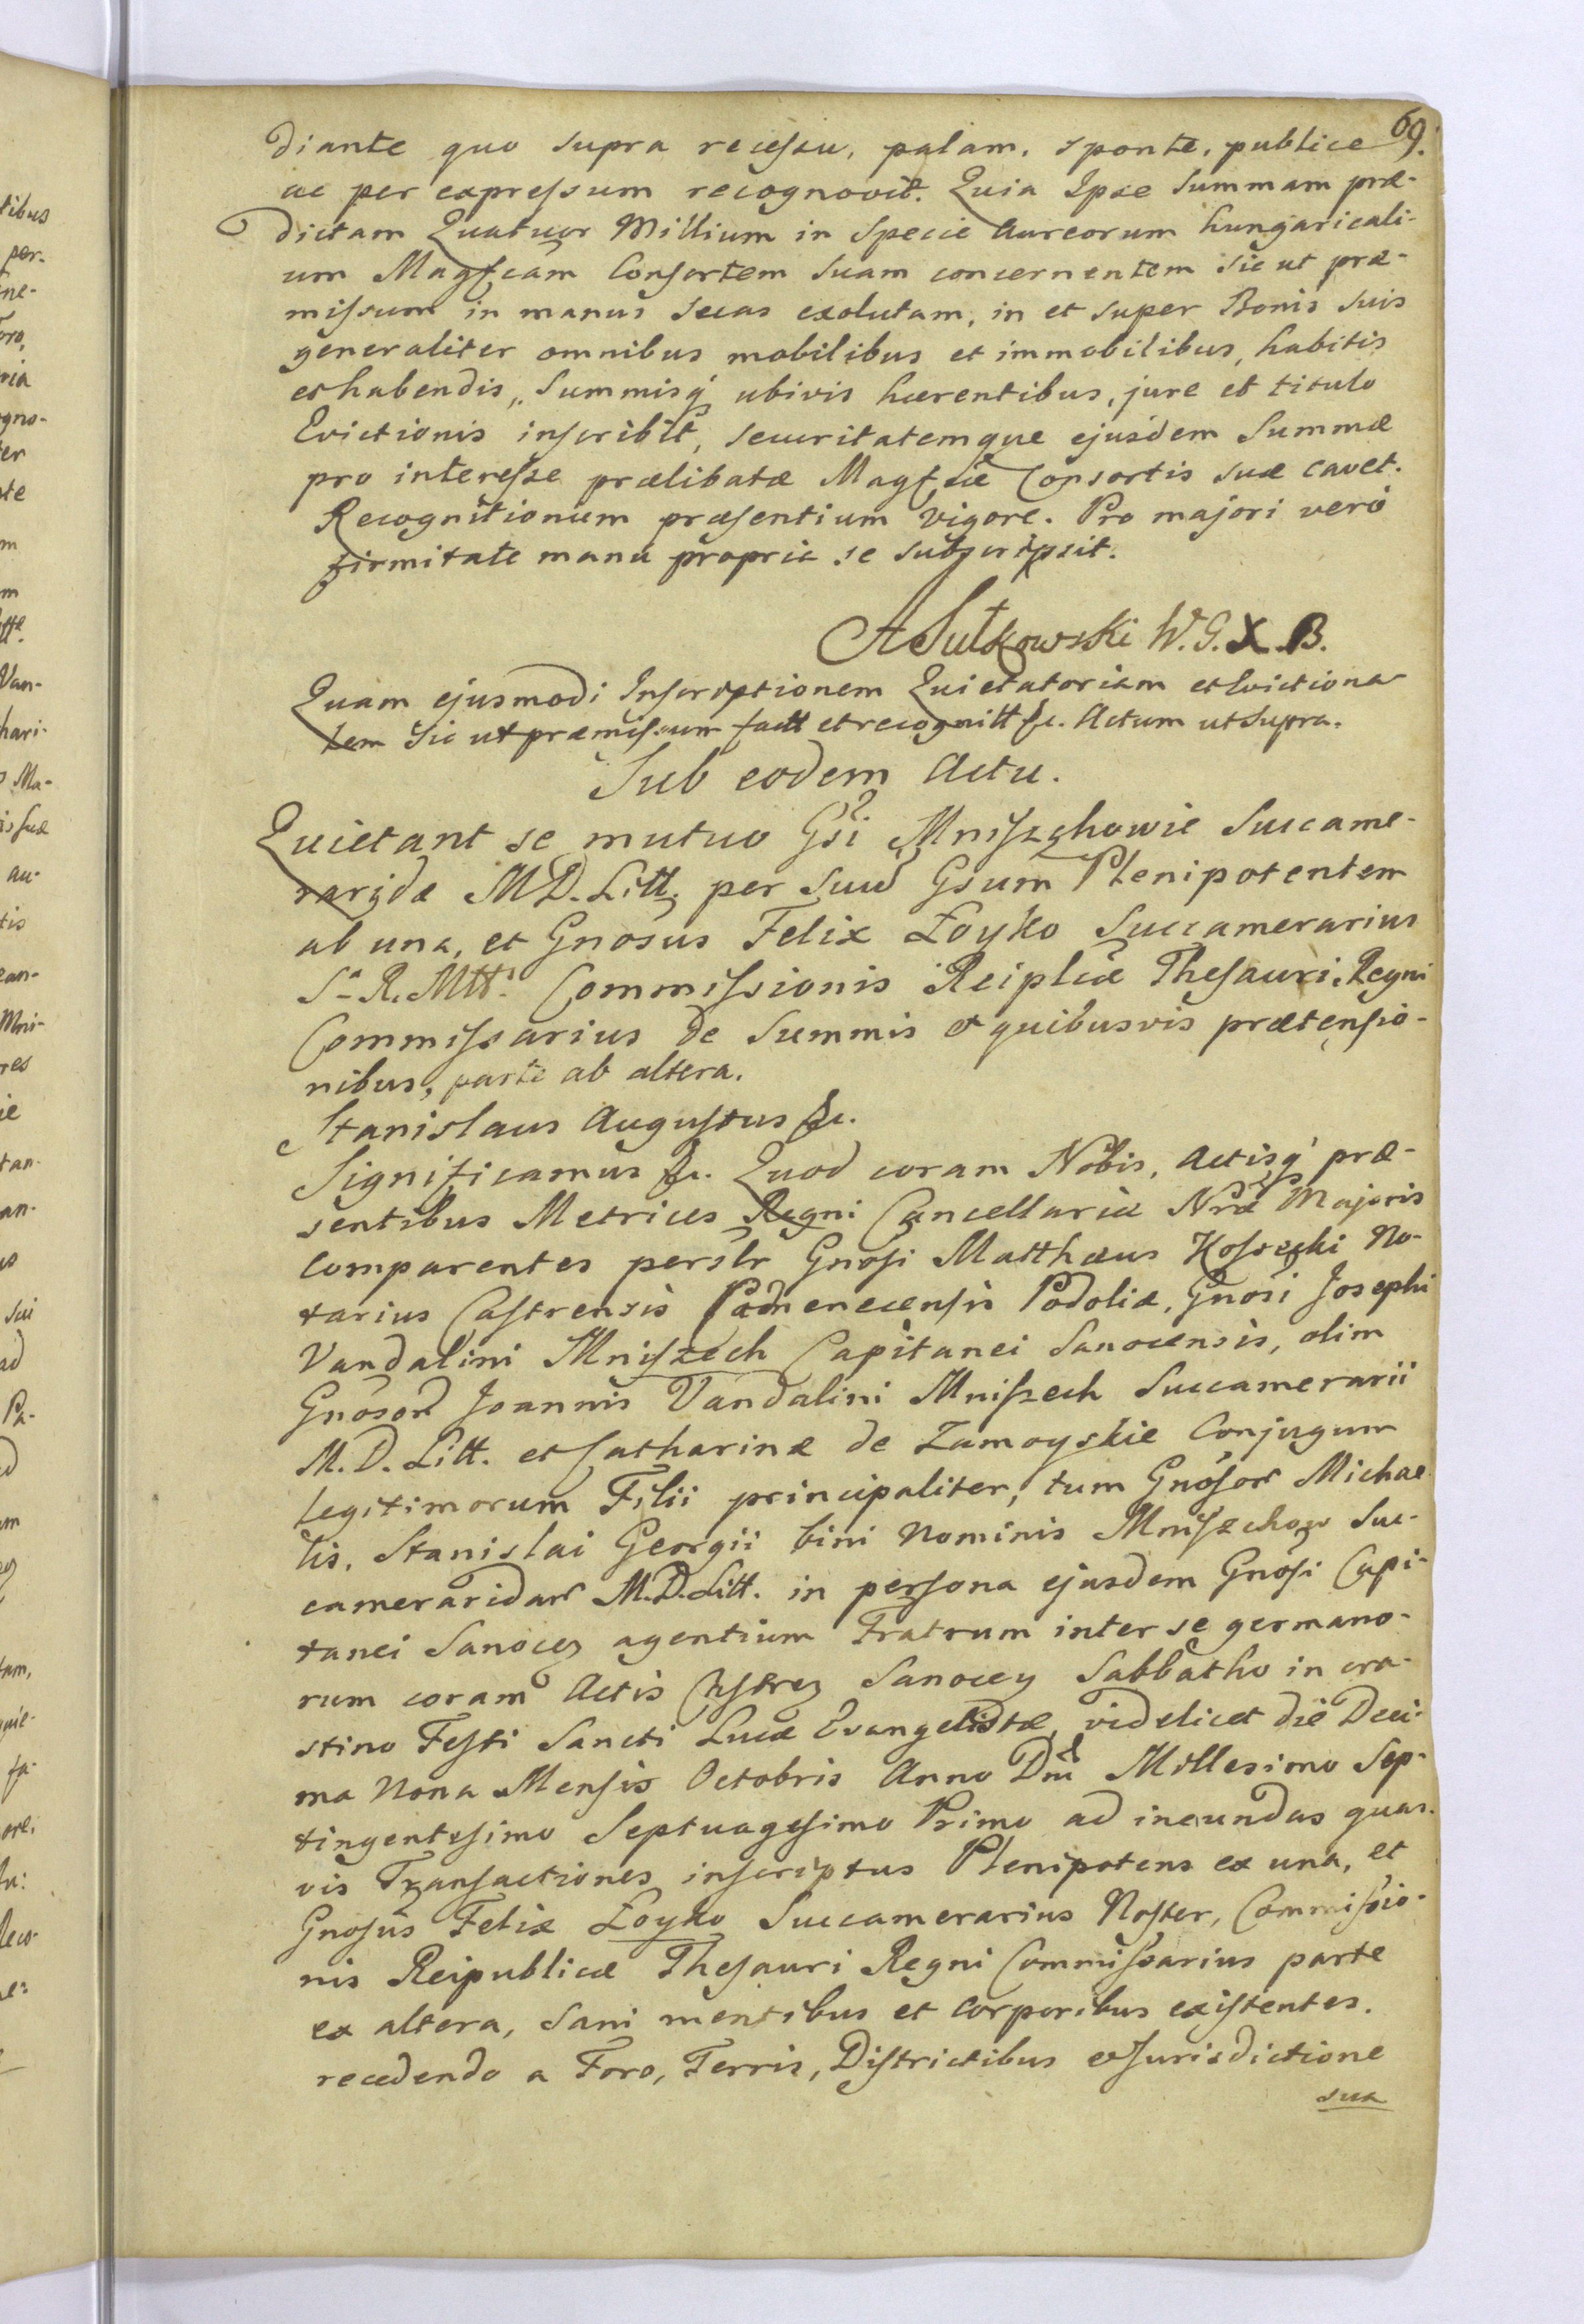 69.
diante quo supra recessu, palam, sponte, publice
ac per expressum recognovit. Quia Ipse Summam præ-
dictam Quatuor Millium in Specie Aureorum hungaricali-
um Magfcam Consortem Suam concernentem sic ut præ-
missum in manus Suas exolutam, in et super Bonis Suis
generaliter omnibus mobilibus et immobilibus, habitis
et habendis, Summisq́ ubivis hærentibus, jure et titulo
Evictionis inscribit, securitatemque ejusdem Summæ
pro interesse prælibatæ Magfcæ Consortis suæ cavet.
Recognitionum præsentium vigore. Pro majori verò
firmitate manu propria se subscripsit.
ASułkowski W. G. X. B.
Quam ejusmodi Inscriptionem Quietatoriam et Evictiona
lem sic ut præmissum factt et recognitt &c. Actum ut Supra.
Sub eodem Actu.
Quietant se mutuo Gsi Mniszchowie Succame-
raridæ M.D. Litt. per Suum Gsum Plenipotentem
ab una, et Gnosus Felix Łoyko Succamerarius
S. R. Mtt. Commissionis Reiplcæ Thesauri Regni
Commissarius de Summis et quibusvis prætensio-
nibus, parte ab altera.
Stanislaus Augustus &c.
Significamus &c. Quod coram Nobis, Actisq́ præ-
sentibus Metrices Regni Cancellariæ Nræ Majoris
comparentes persłr Gnosi Matthæus Kossecki No-
tarius Castrensis Camenecensis Podoliæ, Gnosi Josephi
Vandalini Mniszech Capitanei Sanocensis, olim
Gnosor Joannis Vandalini Mniszech Succamerarii
M. D. Litt. et Catharinæ de Zamoyskie Conjugum
legitimorum Filii principaliter, tum Gnosor Michae
lis, Stanislai Georgii bini Nominis Mniszchow Suc-
cameraridar M.D. Litt. in persona ejusdem Gnosi Capi-
tanei Sanocen agentium Fratrum inter se germano-
rum coram Actis Castren Sanocen Sabbatho in cra-
stino Festi Sancti Lucæ Evangelistæ, videlicet die Deci-
ma Nona Mensis Octobris Anno Dni Millesimo Sep-
tingentesimo Septuagesimo Primo ad ineundas quas-
vis Transactiones inscriptus Plenipotens ex una, et
Gnosus Felix Łoyko Succamerarius Noster, Commissio-
nis Reipublicæ Thesauri Regni Commissarius parte
ex altera, Sani mentibus et Corporibus existentes.
recedendo a Foro, Terris, Districtibus et Jurisdictione
sua